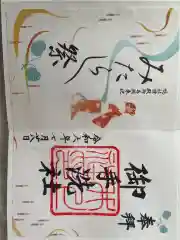 みたらし祭
奉拝
御手洗社
令和六年七月廿八日